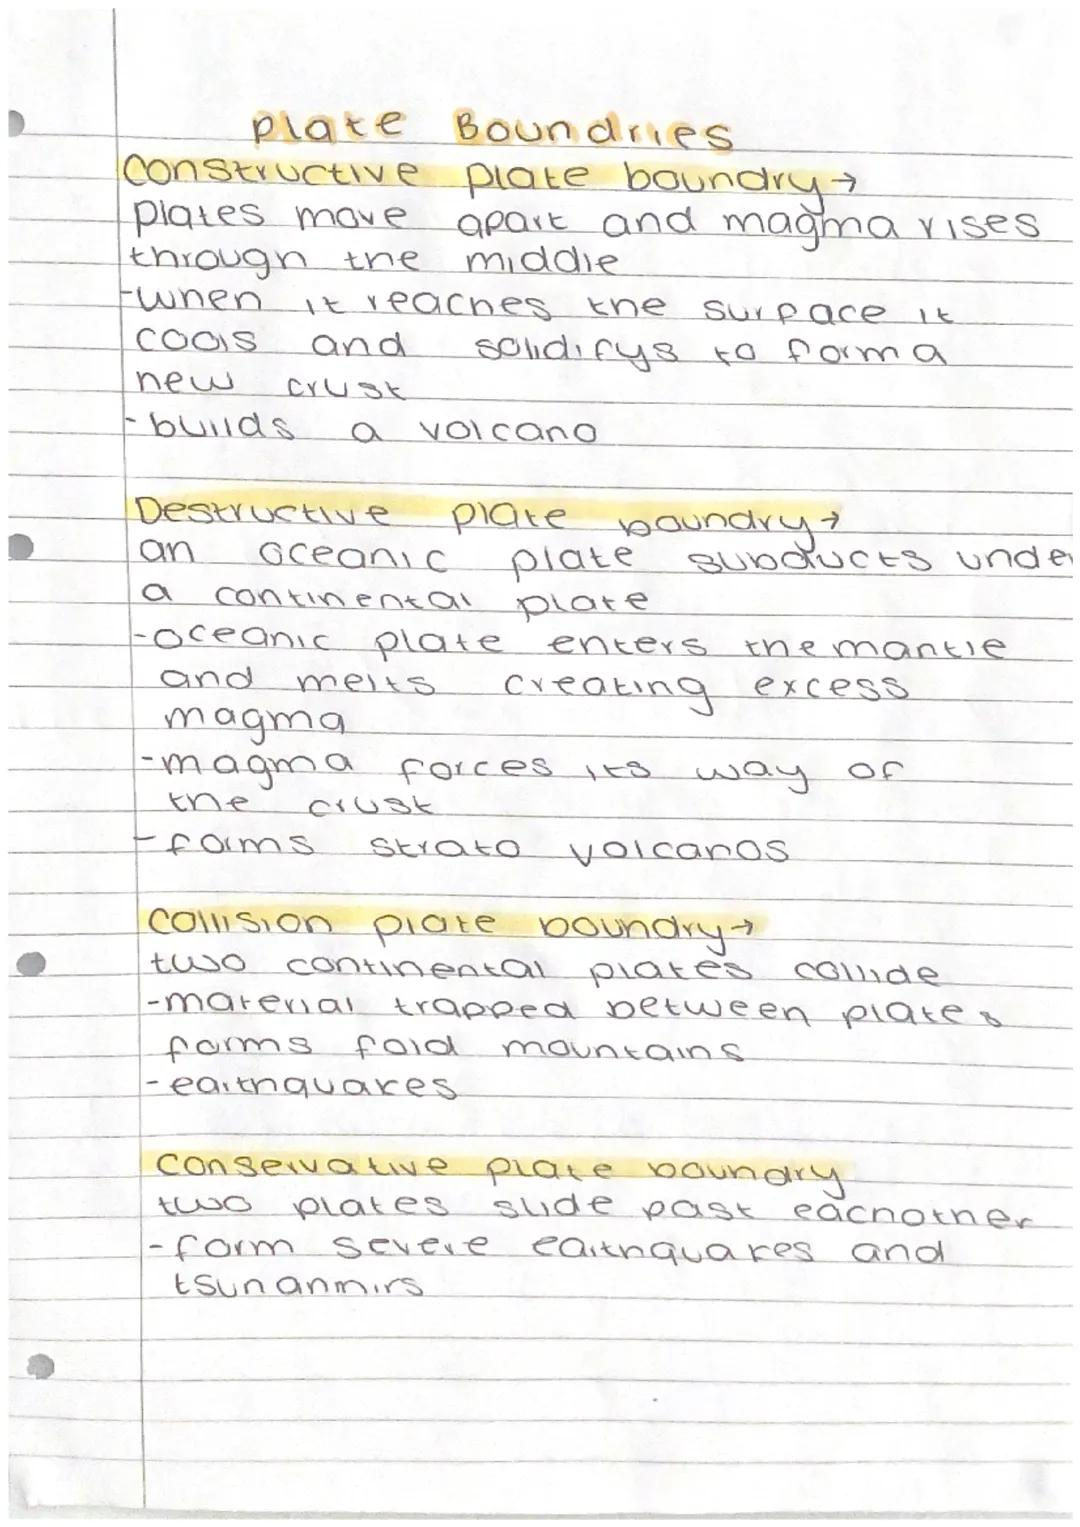 Plate Boundries
Constructive plate boundry→
plates move apart and magma rises
through the middle
-when it reaches the surface it
cools and solidifys to form a
new crust
-builds a volcano
Destructive plate boundry→
an oceanic plate subducts under
a continental plate
-oceanic plate enters the mantle
and melts creating excess
magma
-magma forces its way of
the crust
-forms strato volcanos
Collision plate boundry→
two continental plates collide
-material trapped between plates
forms fold mountains
-earthquakes
Conservative plate boundry
two plates slide past eachother
-form severe earthquakes and
tsunanmirs